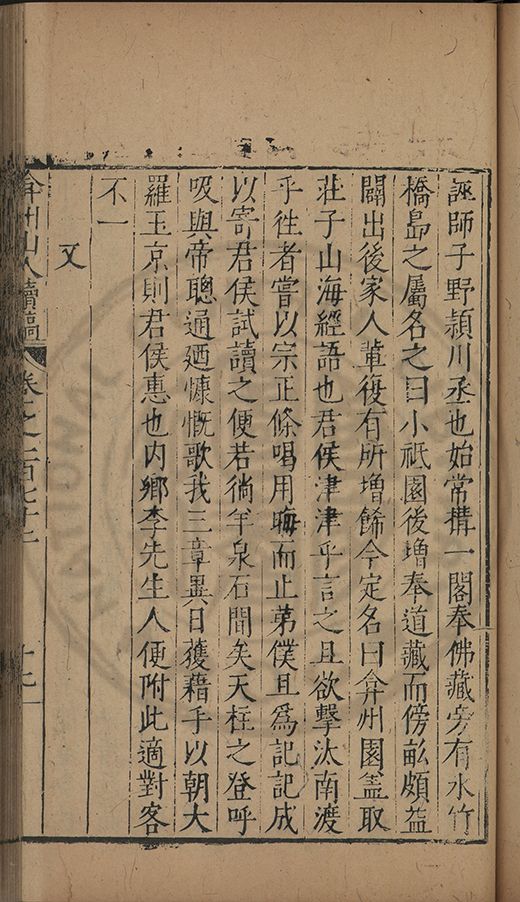 誣師子野潁川丞也始常搆一閣奉佛藏旁有水竹
橋島之屬名之曰小祇園後增奉道藏而傍畝頗益
闢出後家人輩復有所增餙今定名曰弇州園盖取
莊子山海經語也君侯津津乎言之且欲擊汰南渡
乎徃者嘗以宗正條喝用晦而止苐僕且爲記記成
以寄君侯試讀之便若徜羊泉石間矣天柱之登呼
吸與帝聰通廼慷慨歌我三章異日獲藉手以朝大
羅玉京則君侯惠也内鄉李先生人便附此適對客
不一
又
弇州山人續稿 卷之一百七十二